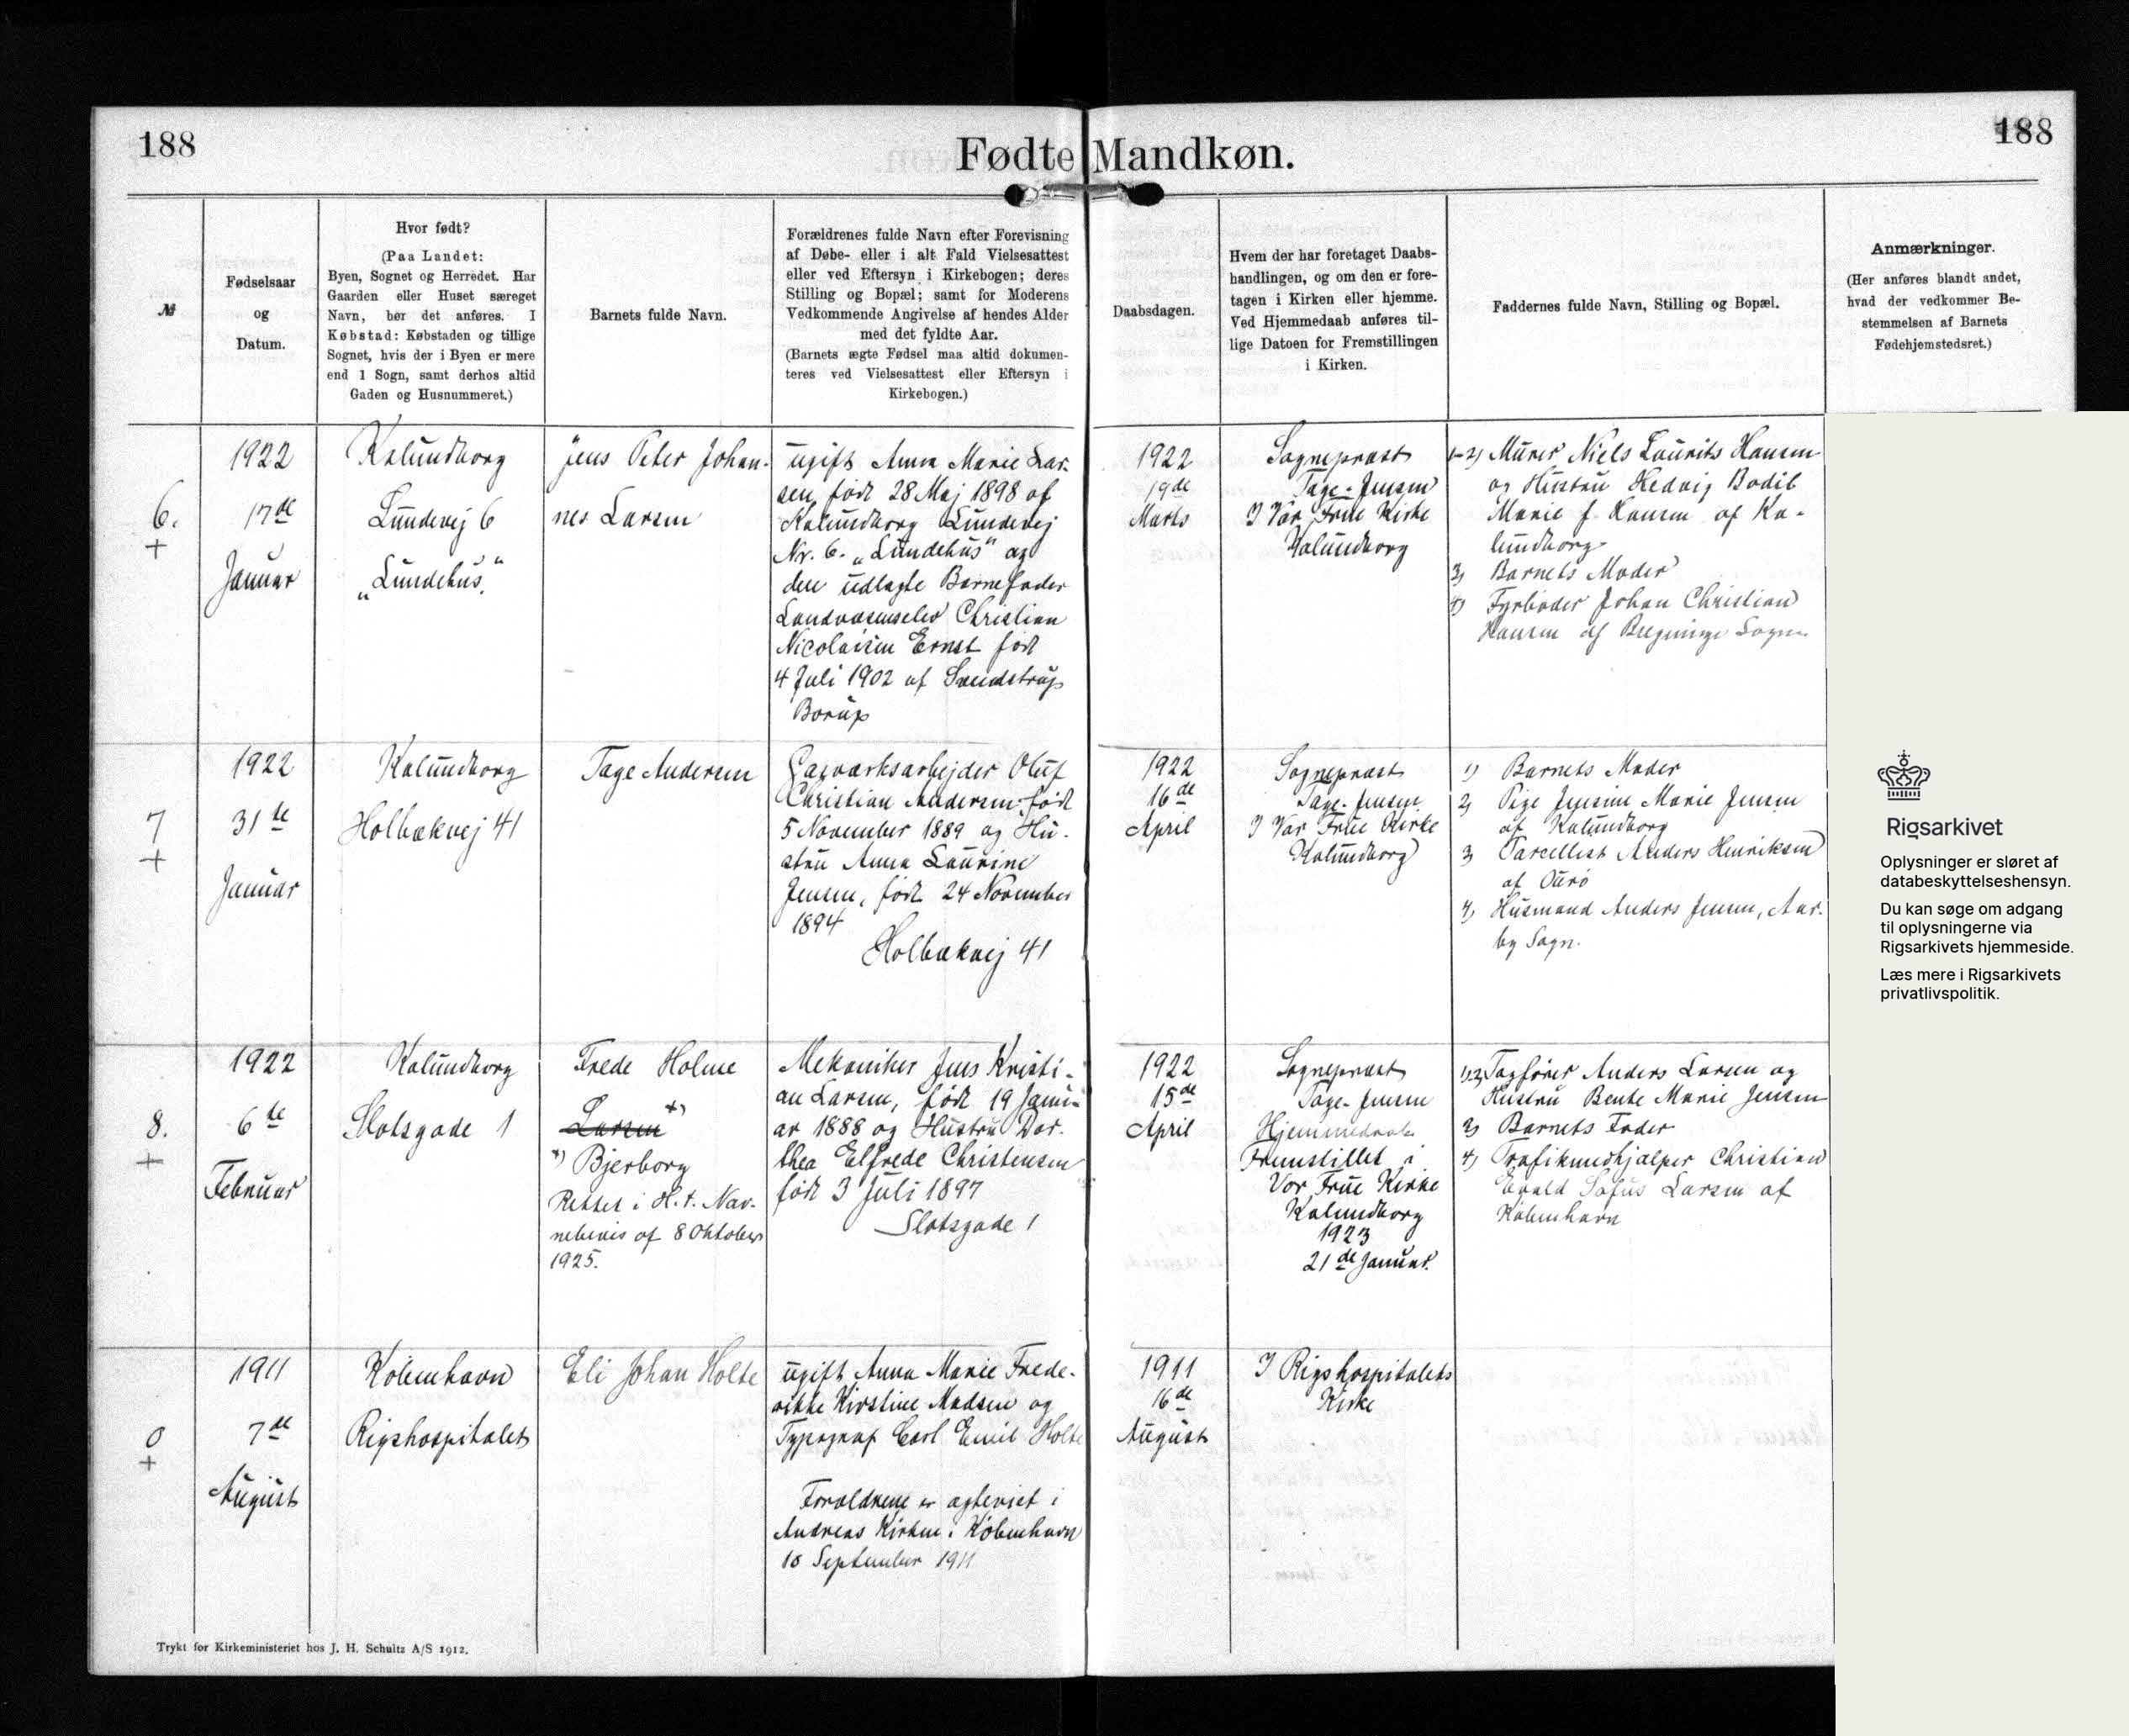 188
Fødte Mandkøn.
188
№
Fødselsaar
og
Datum.
Hvor født?
(Paa Landet:
Byen, Sognet og Herredet. Har
Gaarden eller Huset særeget
Navn, bør det anføres. I
Købstad: Købstaden og tillige
Sognet, hvis der i Byen er mere
end 1 Sogn, samt derhos altid
Gaden og Husnummeret.)
Barnets fulde Navn.
Forældrenes fulde Navn efter Forevisning
af Døbe- eller i alt Fald Vielsesattest
eller ved Eftersyn i Kirkebogen; deres
Stilling og Bopæl; samt for Moderens
Vedkommende Angivelse af hendes Alder
med det fyldte Aar.
(Barnets ægte Fødsel maa altid dokumen-
teres ved Vielsesattest eller Eftersyn i
Kirkebogen.)
Daabsdagen.
Hvem der har foretaget Daabs-
handlingen, og om den er fore-
tagen i Kirken eller hjemme.
Ved Hjemmedaab anføres til-
lige Datoen for Fremstillingen
i Kirken.
Faddernes fulde Navn, Stilling og Bopæl.
Anmærkninger.
(Her anføres blandt andet,
hvad der vedkommer Be-
stemmelsen af Barnets
Fødehjemstedsret.)
6.
+
1922
17de
Januar
Kalundborg
Lundevej 6
„Lundehus“
Jens Peter Johan-
nes Larsen
ugift Anna Marie Lar-
sen, født 28 Maj 1898 af
Kalundborg Lundevej
Nr. 6. „Lundehus“ og
den udlagte Barnefader
Landvæsenselev Christian
Nicolaisen Ernst født
4 Juli 1902 af Svendstrup
Borup
1922
19de
Marts
Sognepræst
Tage-Jensen
I Vor Frue Kirke
Kalundborg
1-2) Murer Niels Laurits Hansen
og Hustru Hedvig Bodil
Marie f. Hansen af Ka-
lundborg
3) Barnets Moder
4) Fyrbøder Johan Christian
Hansen af Bregninge Sogn
7
+
1922
31te
Januar
Kalundborg
Holbækvej 41
Tage Andersen
Gasværksarbejder Oluf
Christian Andersen født
5 November 1889 og Hu-
stru Anna Laurine
Jensen, født 24 November
1894
Holbækvej 41
1922
16de
April
Sognepræst
Tage-Jensen
I Vor Frue Kirke
Kalundborg
1) Barnets Moder
2) Pige Jensine Marie Jensen
af Kalundborg
3) Parcellist Anders Henriksen
af Ourø
4) Husmand Anders Jensen, Aar-
by Sogn.
8.
+
1922
6te
Februar
Kalundborg
Slotsgade 1
Frede Holme
Larsen +)
+) Bjerborg
Rettet i H. t. Nav-
nebevis af 8 Oktober
1925.
Mekaniker Jens Kristi-
an Larsen, født 19 Janu-
ar 1888 og Hustru Dor-
thea Elfrede Christensen
født 3 Juli 1897
Slotsgade 1
1922
15de
April
Sognepræst
Tage-Jensen
Hjemmedaab
Fremstillet i
Vor Frue Kirke
Kalundborg
1923
21de Januar.
1,2) Togfører Anders Larsen og
Hustru Bente Marie Jensen
3) Barnets Fader
4) Trafikmedhjælper Christian
Evald Sofus Larsen af
København
0
+
1911
7de
August
København
Rigshospitalet
Eli Johan Holte
ugift Anna Marie Frede-
rikke Kirstine Madsen og
Typograf Carl Emil Holte
Forældrene er ægteviet i
Andreas Kirken i København
10 September 1911
1911
16de
August
I Rigshospitalets
Kirke
Trykt for Kirkeministeriet hos J. H. Schultz A/S 1912.
Rigsarkivet
Oplysninger er sløret af
databeskyttelseshensyn.
Du kan søge om adgang
til oplysningerne via
Rigsarkivets hjemmeside.
Læs mere i Rigsarkivets
privatlivspolitik.